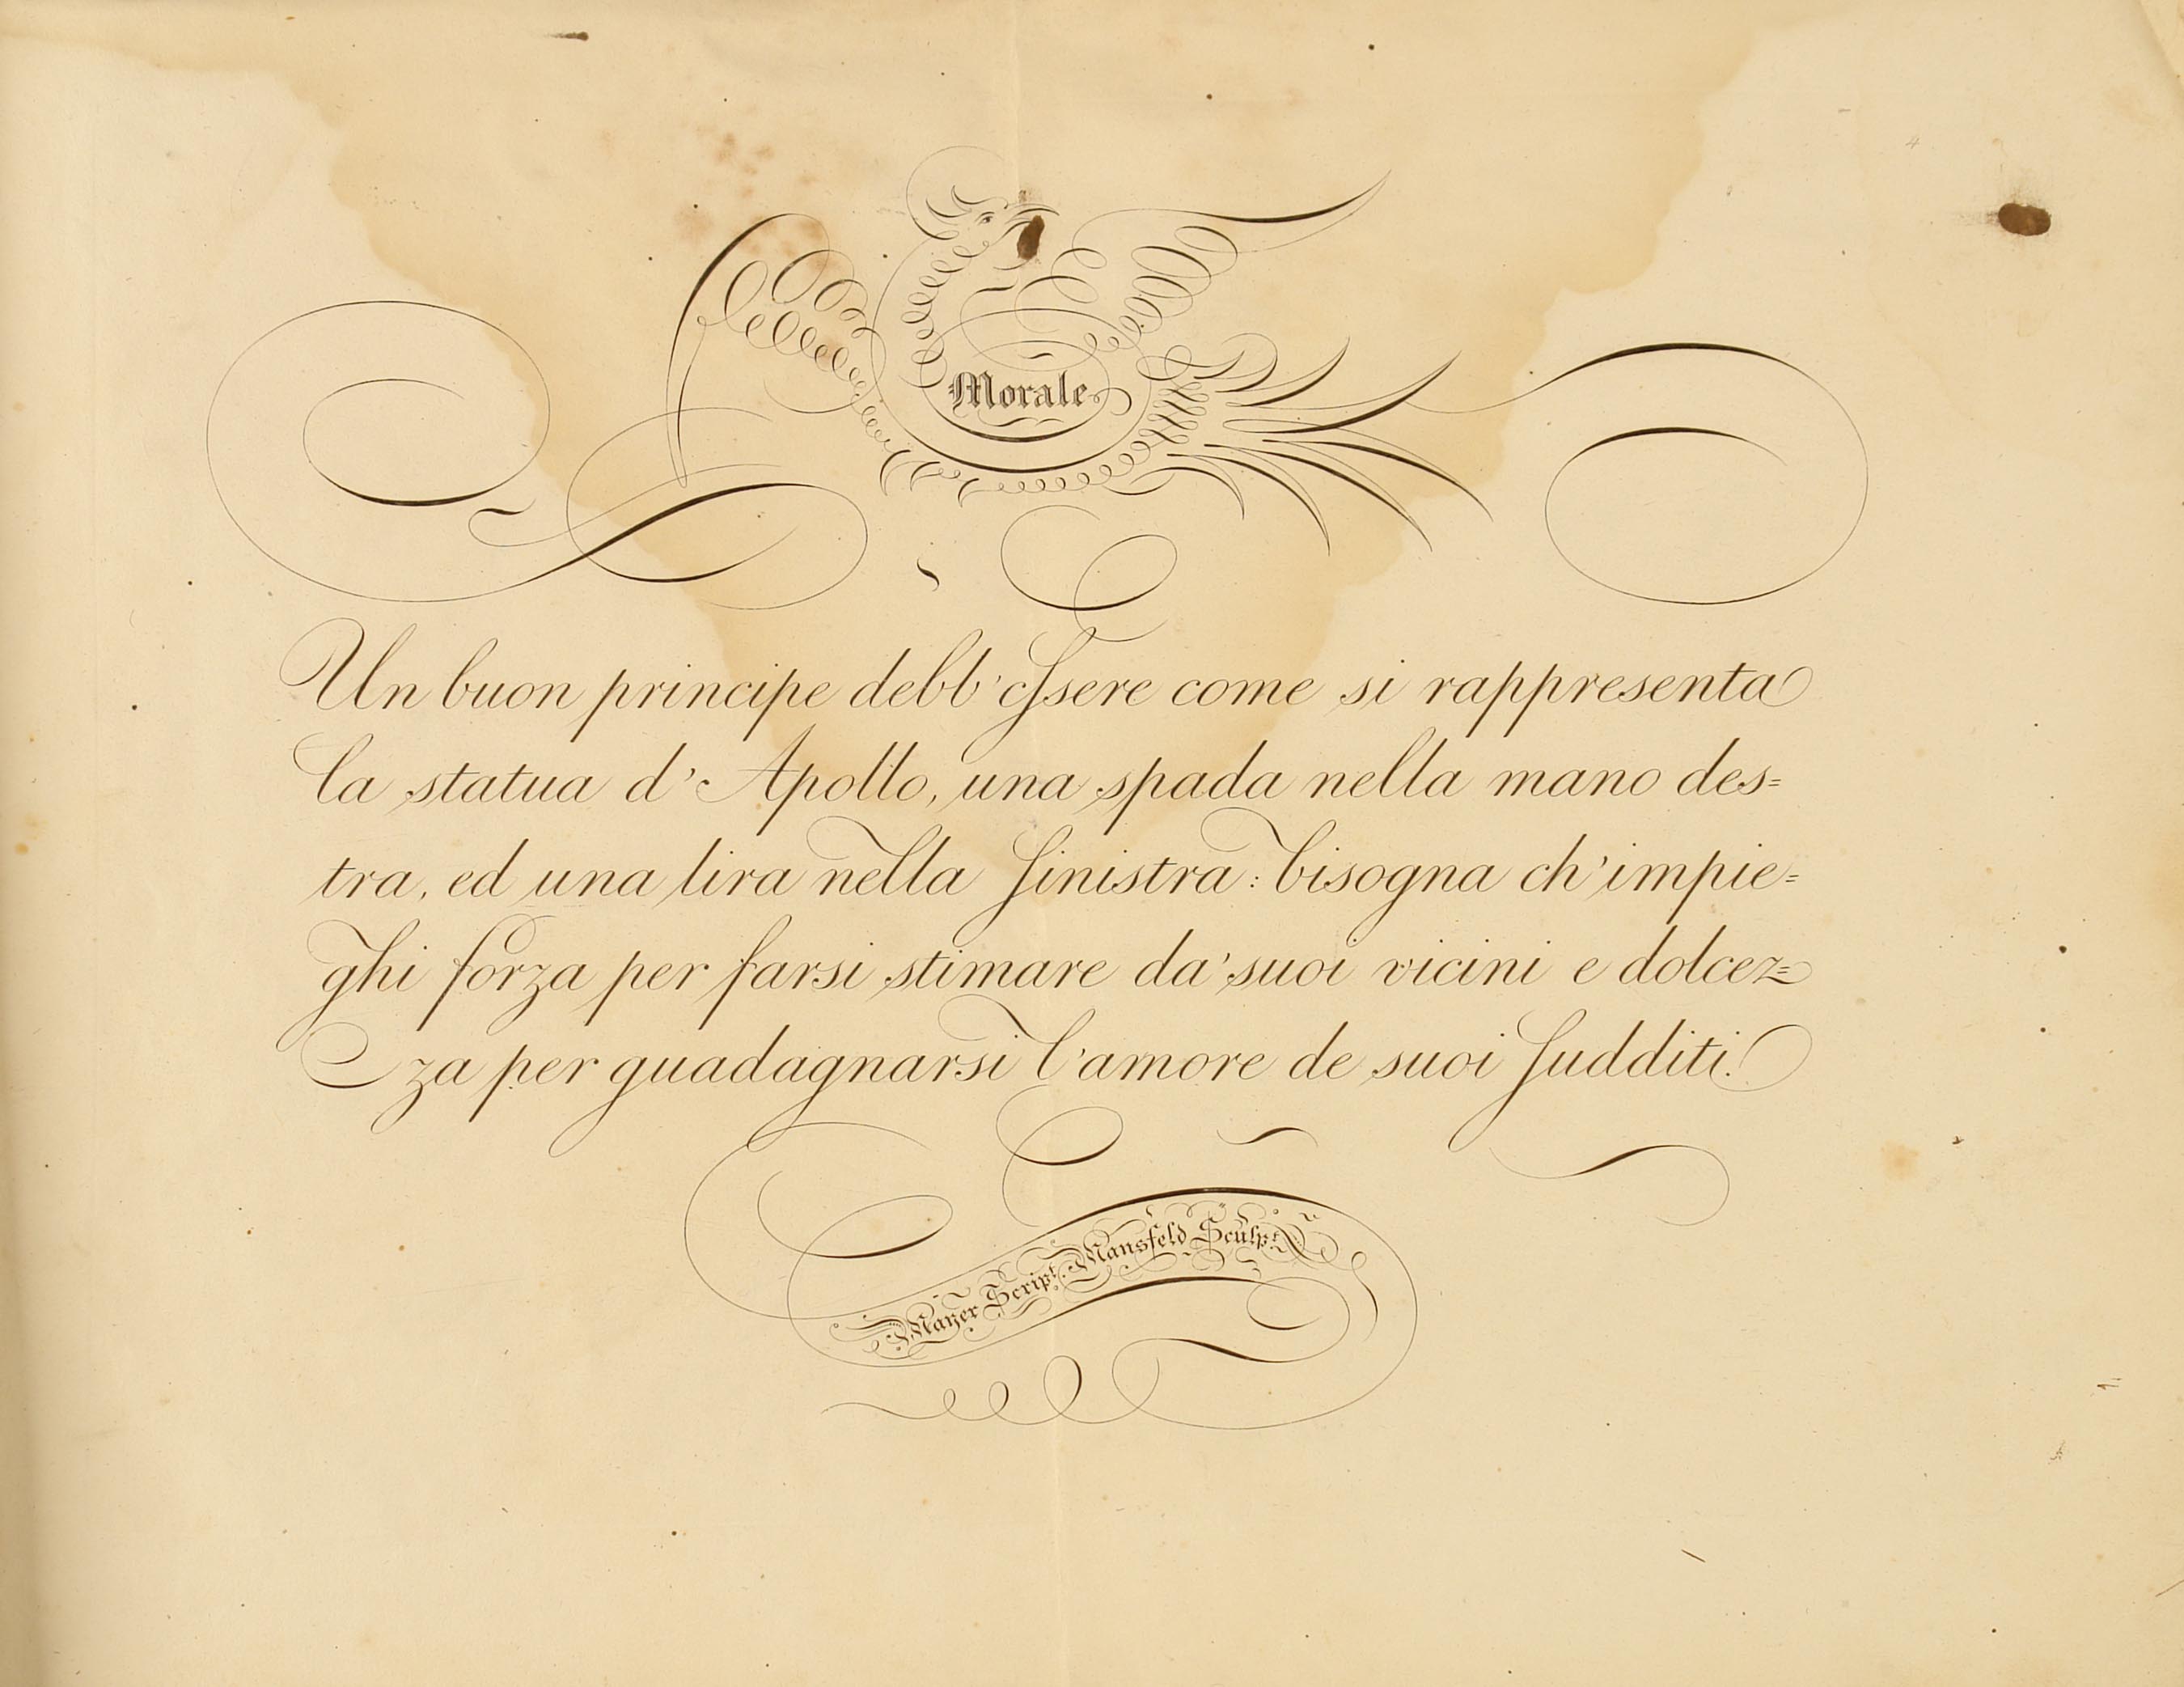 Morale
Un buon principe debb'eſsere come si rappresenta
la statua d'Apollo, una spada nella mano des=
tra, ed una lira nella ſinistra: bisogna ch'impie=
ghi forza per farsi stimare da'suoi vicini e dolcez=
za per guadagnarsi l'amore de suoi ſudditi.
Mayer Script. Mansfeld Sculpt.